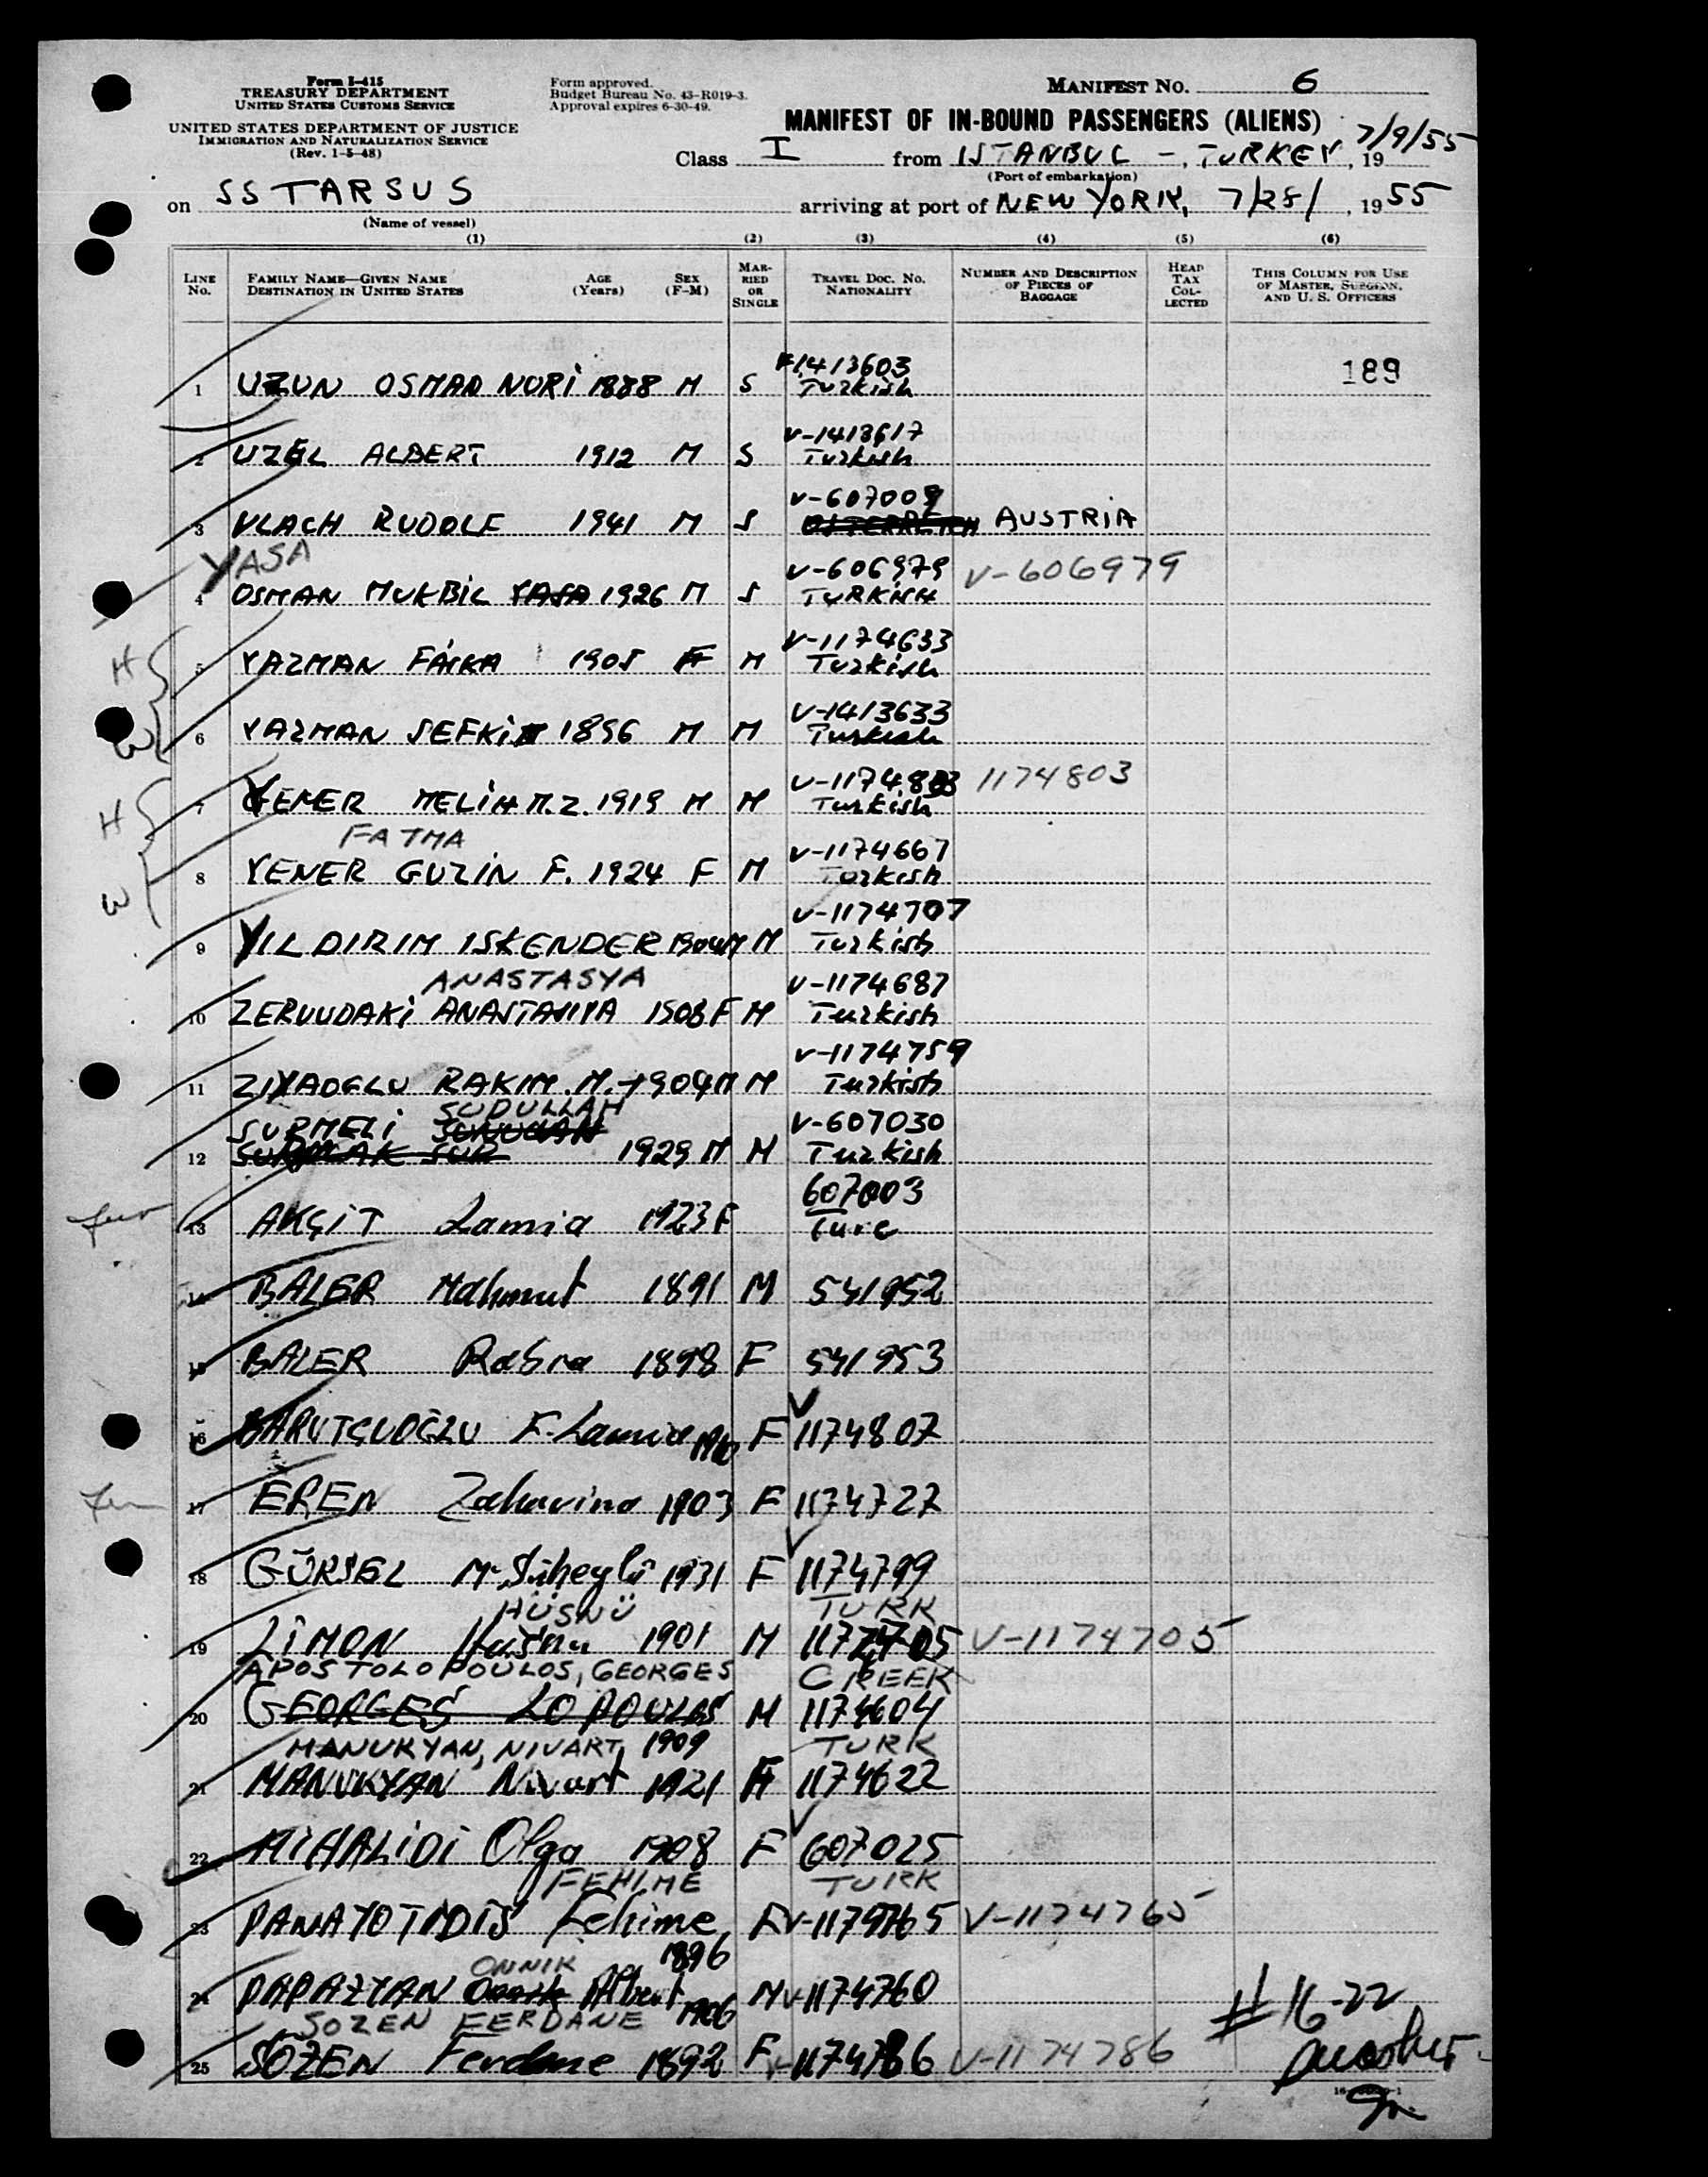 Form I-415
TREASURY DEPARTMENT
UNITED STATES CUSTOMS SERVICE
UNITED STATES DEPARTMENT OF JUSTICE
IMMIGRATION AND NATURALIZATION SERVICE
(Rev. 1-5-48)
Form approved.
Budget Bureau No. 43-R019-3.
Approval expires 6-30-49.
MANIFEST NO. 6
MANIFEST OF IN-BOUND PASSENGERS (ALIENS)
Class I from ISTANBUL -, TURKEY, 19 7/9/55
(Port of embarkation)
on SS TARSUS arriving at port of NEW YORK, 7/28/, 1955
(Name of vessel)
(1) (2) (3) (4) (5) (6)
LINE No. FAMILY NAME—GIVEN NAME DESTINATION IN UNITED STATES AGE (Years) SEX (F-M) MARRIED OR SINGLE TRAVEL DOC. NO. NATIONALITY NUMBER AND DESCRIPTION OF PIECES OF BAGGAGE HEAD TAX COLLECTED THIS COLUMN FOR USE OF MASTER, SURGEON, AND U. S. OFFICERS
1413603 189
1 UZUN OSMAN NURİ 1888 M S Turkish
V-1413617
2 UZEL ALBERT 1912 M S Turkish
V-607009
3 VLACH RUDOLF 1941 M S AUSTRIA
YASA V-606979 V-606979
4 OSMAN MUKBİL YASA 1926 M S TURKISH
V-1174633
H 5 YAZMAN FAİKA 1905 F M Turkish
V-1413633
W 6 YAZMAN SEFKİ 1896 M M Turkish
V-1174803 1174803
H 7 YENER MELİH M.Z. 1919 M M Turkish
FATMA V-1174667
W 8 YENER GUZİN F. 1924 F M Turkish
V-1174707
9 YILDIRIM ISKENDER 1904 M M Turkish
ANASTASYA V-1174687
10 ZERVUDAKİ ANASTASIYA 1908 F M Turkish
V-1174759
11 ZIYAOGLU RAKIM.M. 1904 M M Turkish
SURMELİ SUDULLAH V-607030
12 1929 M M Turkish
607003
13 AKÇİT Lamia 1923 F Turc
14 BALER Mahmut 1891 M 541952
15 BALER Rabia 1898 F 541953
16 BARUTÇUOĞLU F. Lamia F 1174807
17 EREN Zaharina 1903 F 1174727
18 GÜRSEL M. Süheyla 1931 F 1174799
HÜSNÜ TURK
19 LİMON Husnu 1901 M 1174705 V-1174705
APOSTOLOPOULOS, GEORGES GREEK
20 GEORGES LOPOULOS M 1174604
MANUKYAN, NIVART, 1909 TURK
21 MANUKYAN Nivart 1921 F 1174622
22 MİHALİDİ Olga 1908 F 607025
FEHIME TURK
23 PANAYOTIDIS Fehime F V-1174765 V-1174765
1896
ONNIK
24 PAPAZYAN Albert 1906 M V-1174760
SOZEN FERDANE # 16-22
25 SÖZEN Ferdane 1892 F V-1174786 V-1174786